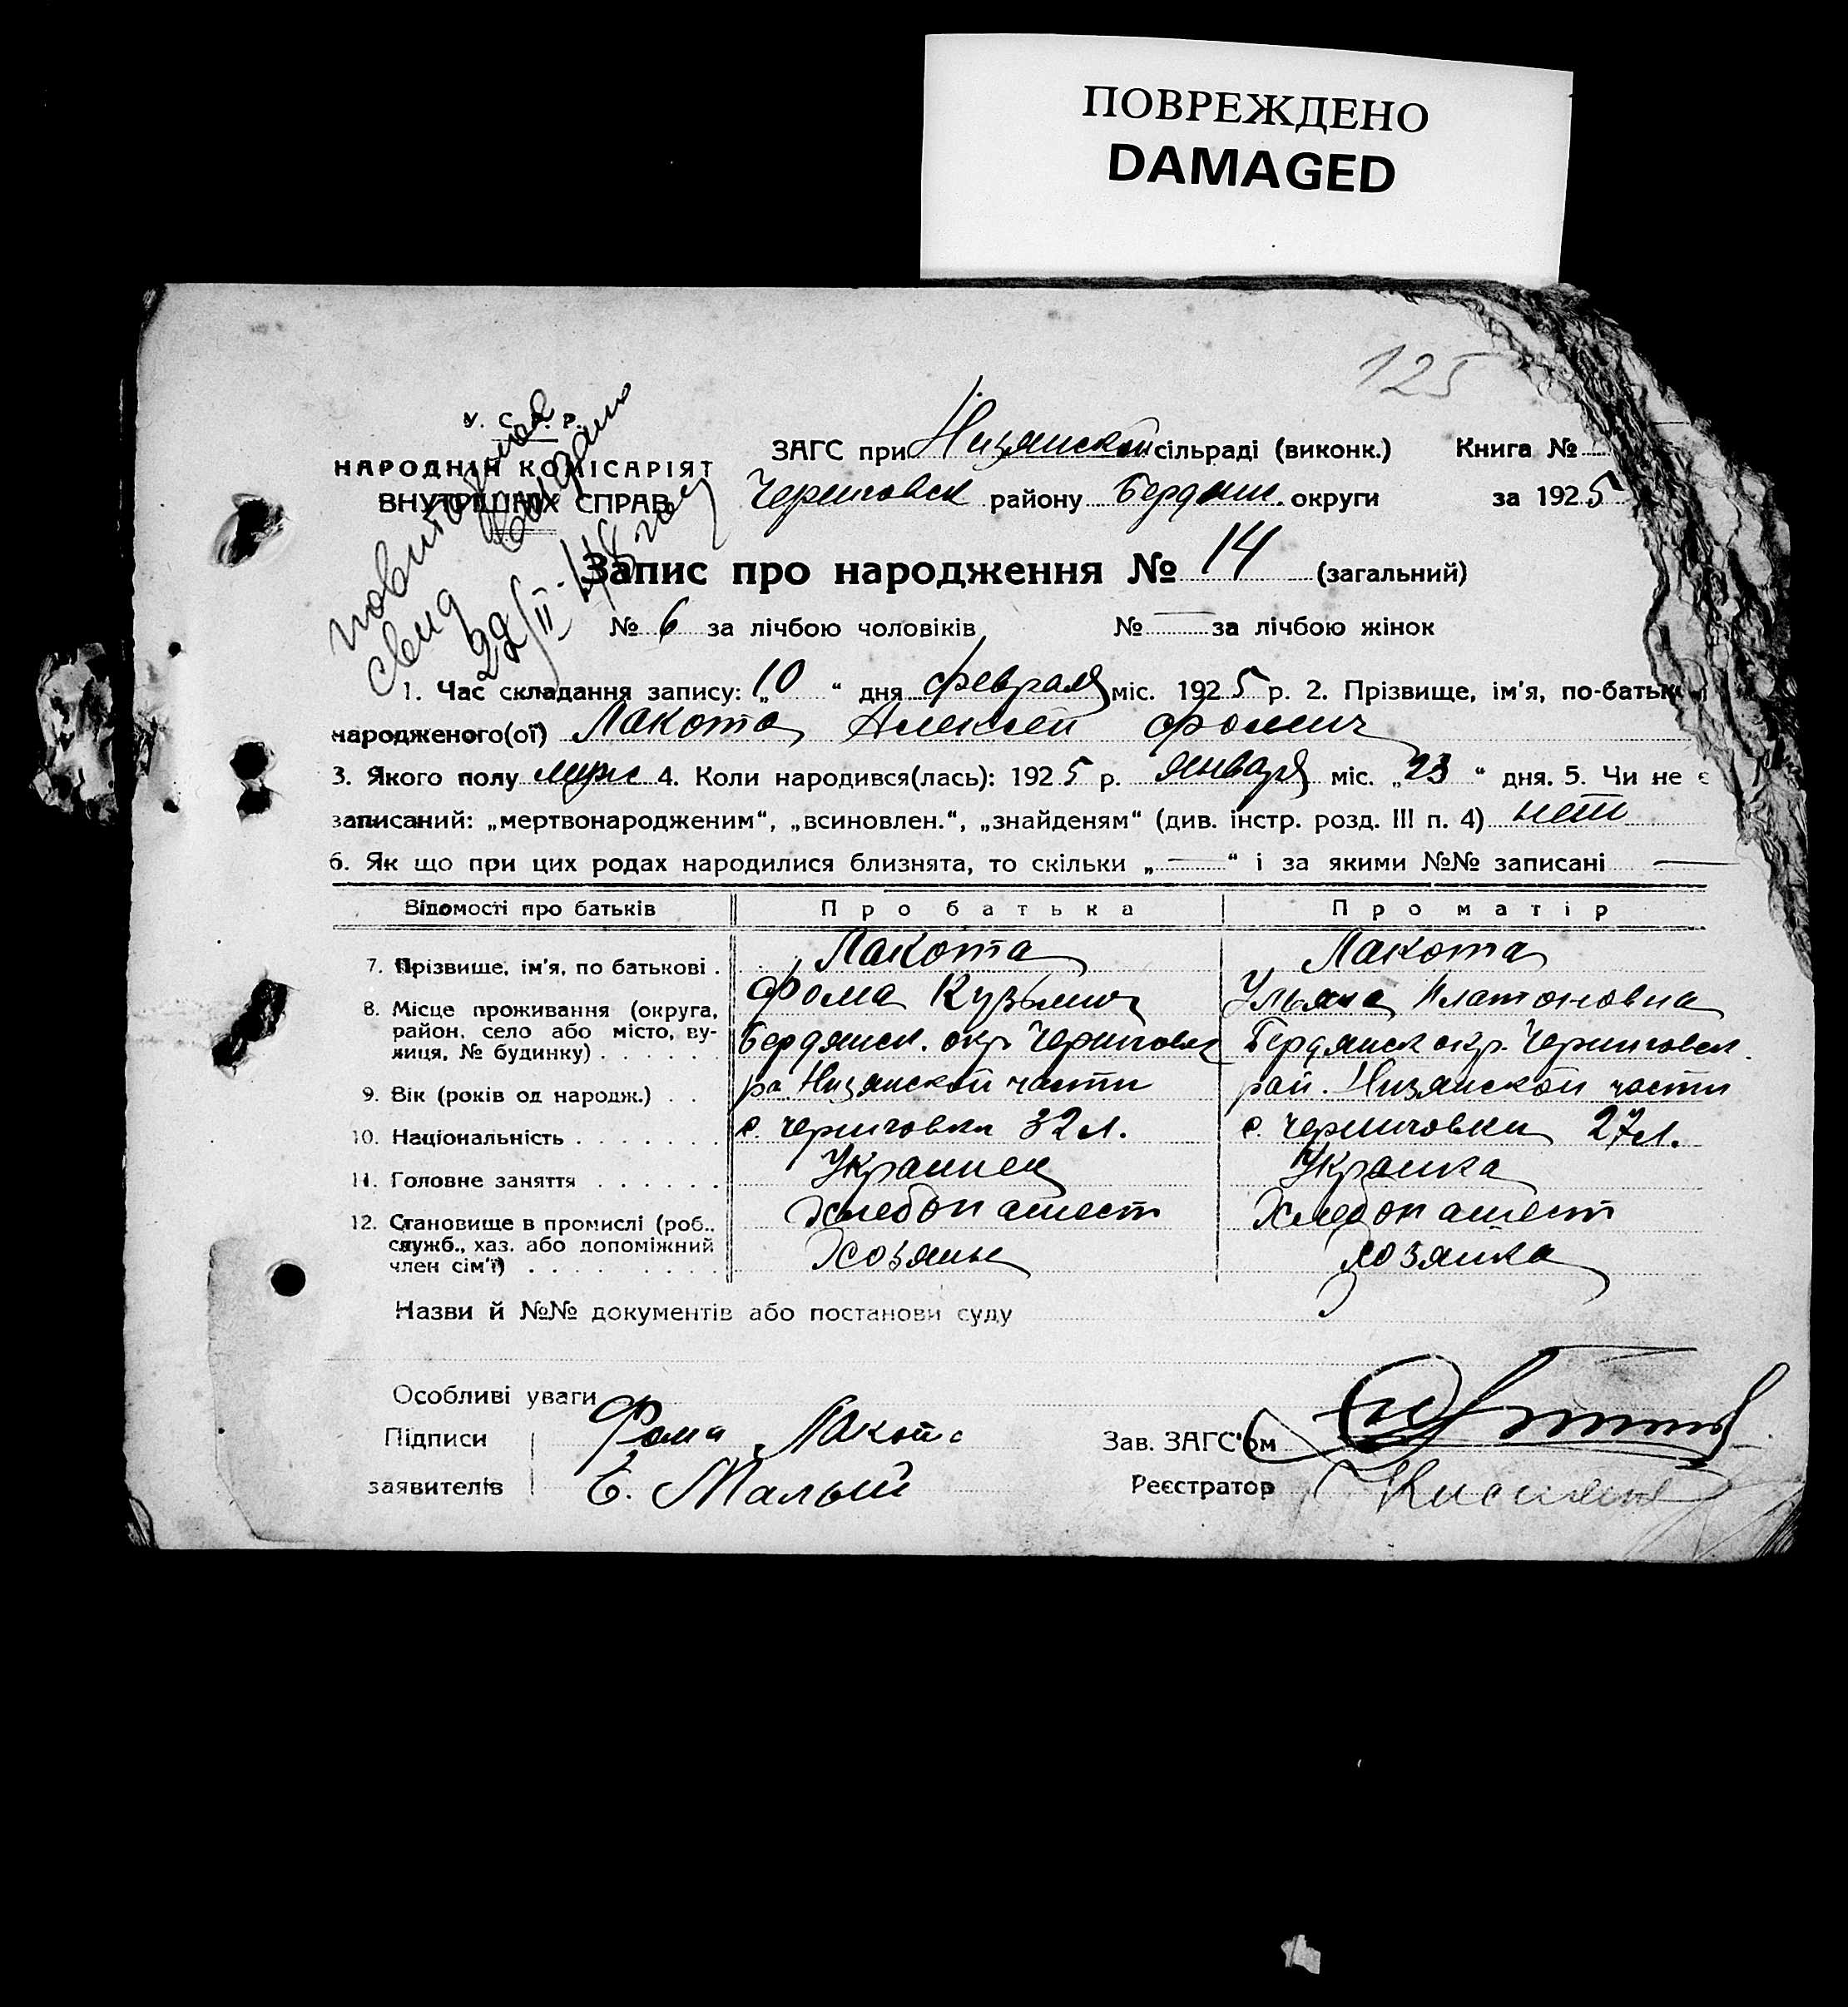 ПОВРЕЖДЕНО
DAMAGED
125
У. С. Р. Р.
НАРОДНІЙ КОМІСАРІЯТ
ВНУТРІШНІХ СПРАВ
свид выдано
22/II-48 году
ЗАГС при Низянской сільраді (виконк.) Книга №
Черниговск району Бердянс. округи за 1925
Запис про народження № 14 (загальний)
№ 6 за лічбою чоловіків № — за лічбою жінок
1. Час складання запису: „10“ дня февраля міс. 1925 р. 2. Прізвище, ім'я, по-батьк
народженого(ої) Лакота Алексей Фомич
3. Якого полу мужс 4. Коли народився(лась): 1925 р. января міс. „23“ дня. 5. Чи не є
записаний: „мертвонародженим“, „всиновлен.“, „знайденям“ (див. інстр. розд. III п. 4) нет
6. Як що при цих родах народилися близнята, то скільки „—“ і за якими №№ записані —
Відомості про батьків Про батька Про матір
7. Прізвище, ім'я, по батькові . Лакота Лакота
Фома Кузьмич Ульяна Платоновна
8. Місце проживання (округа, район, село або місто, ву-
лиця, № будинку) . . . . . . Бердянск. окр. Черниговск Бердянск окр. Черниговск.
9. Вік (років од народж.) . . ра. Низянской части рай. Низянской части
10. Національність . . . . . . . с. Черниговки 32 л. с. Черниговки 27 л.
11. Головне заняття . . . . . . Украинец Украинка
12. Становище в промислі (роб., Хлебопашест Хлебопашест
служб., хаз. або допоміжний
член сім'ї) . . . . . . . . . Хозяин Хозяйка
Назви й №№ документів або постанови суду
Особливі уваги
Підписи Фома Лакота Зав. ЗАГС'ом
заявителів Б. Малый Реєстратор